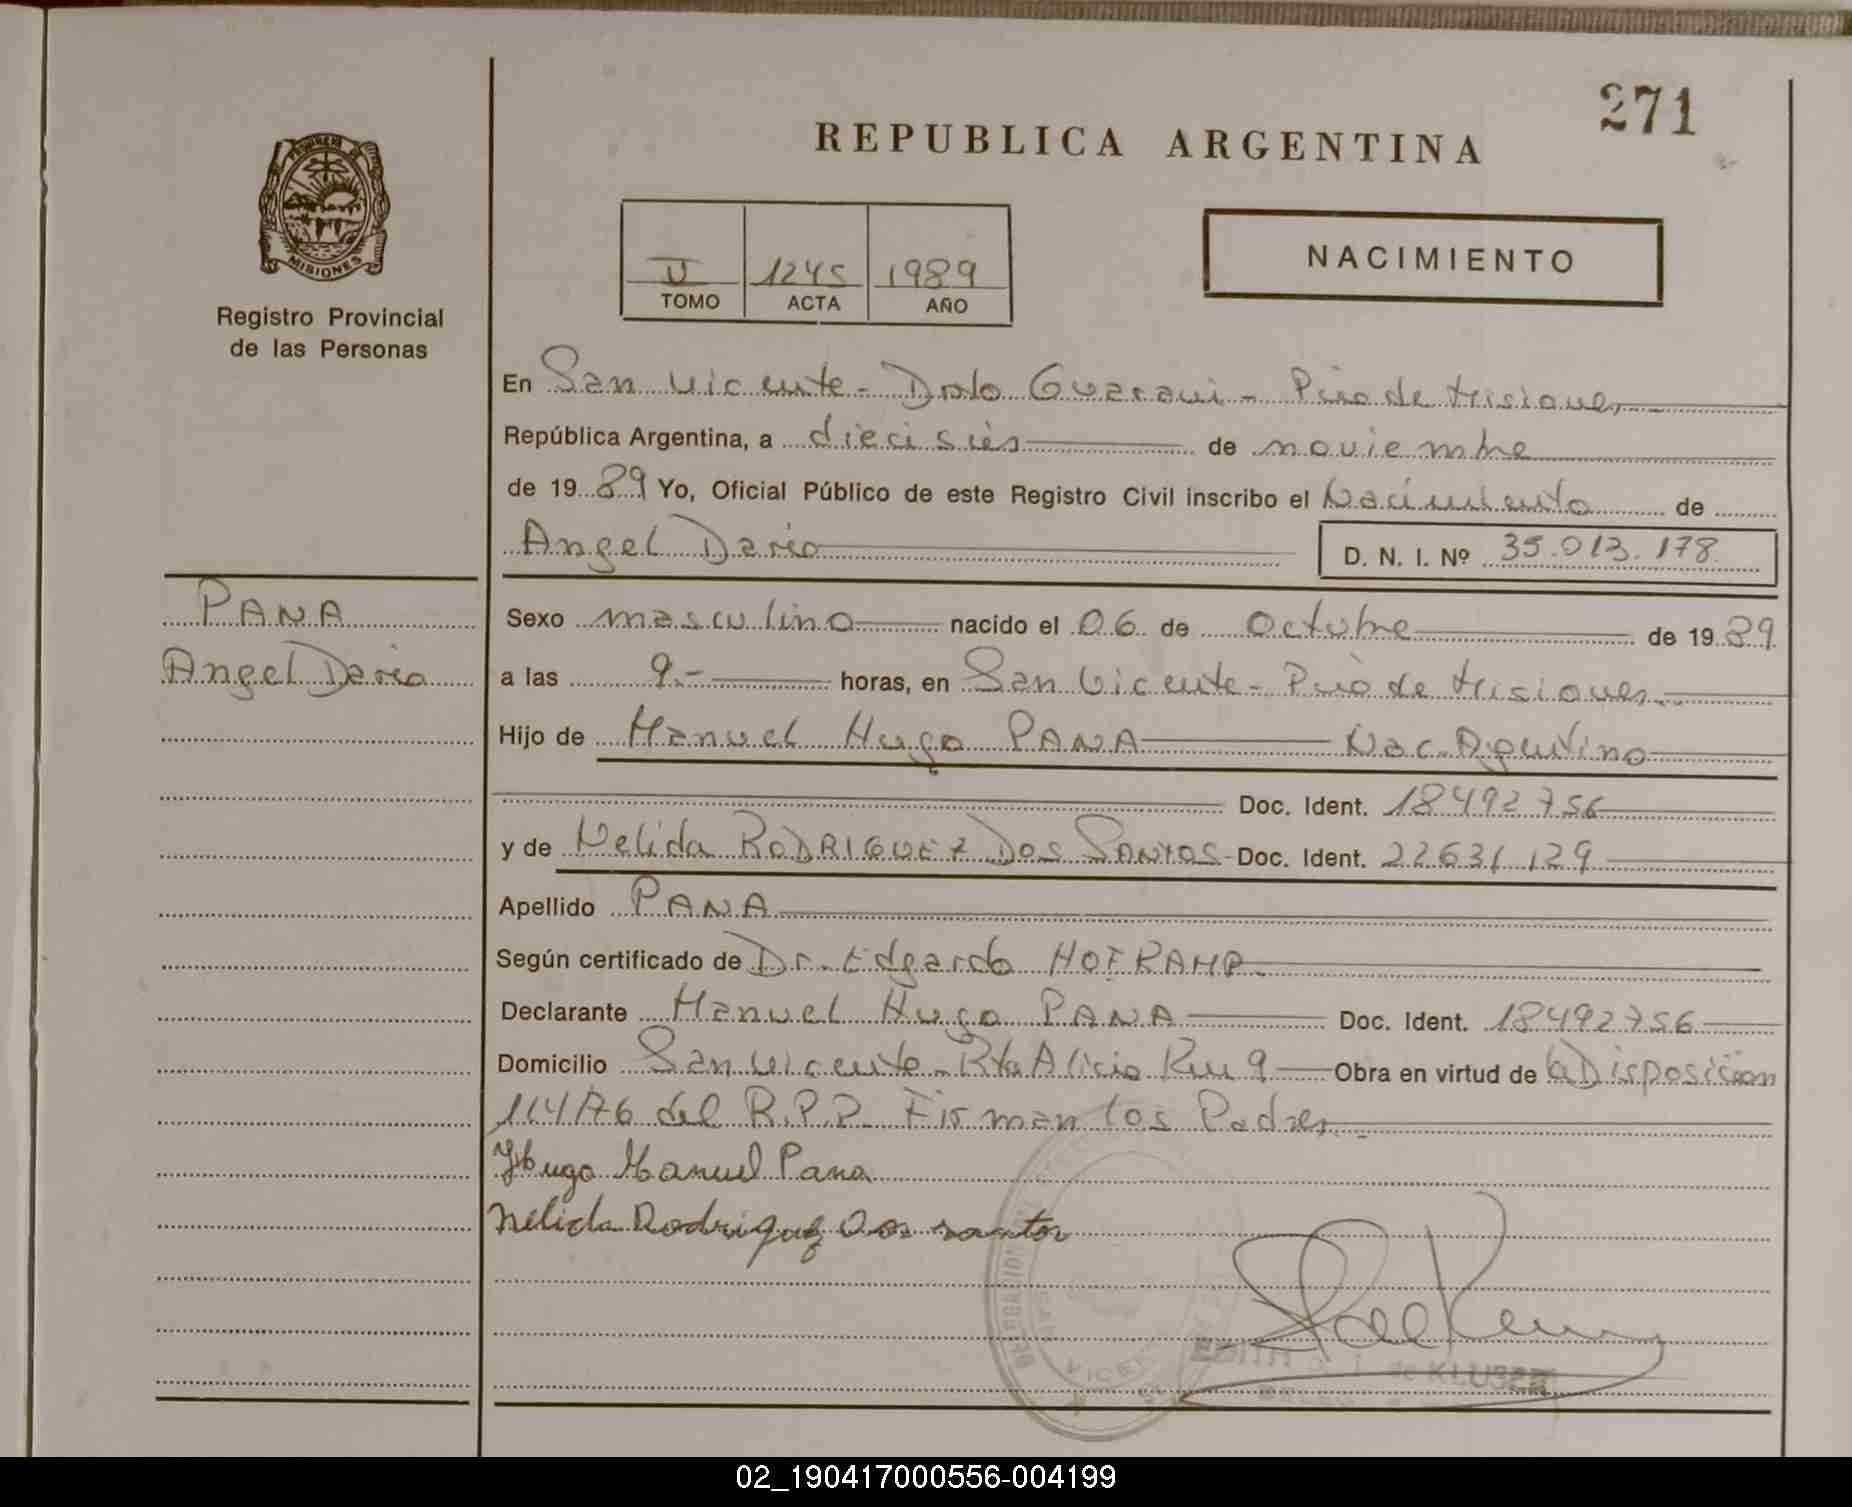 271
REPUBLICA ARGENTINA
PROVINCIA DE
MISIONES
Registro Provincial
de las Personas
II 1245 1989
TOMO ACTA AÑO
NACIMIENTO
En San Vicente - Dpto Guarani - Pcia de Misiones
República Argentina, a dieciseis de noviembre
de 19 89 Yo, Oficial Público de este Registro Civil inscribo el Nacimiento de
Angel Dario D. N. I. Nº 35.013.178
PANA
Angel Dario
Sexo masculino nacido el 06 de Octubre de 19 89
a las 9.- horas, en San Vicente - Pcia de Misiones
Hijo de Manuel Hugo PANA Nac. Argentino
Doc. Ident. 18492756
y de Nelida RODRIGUEZ DOS SANTOS - Doc. Ident. 22631129
Apellido PANA
Según certificado de Dr. Edgardo
Declarante Manuel Hugo PANA Doc. Ident. 18492756
Domicilio San Vicente - Rta Alicia Km 9 Obra en virtud de la Disposición
114/76 del R.P.P. Firman los Padres
Hugo Manuel Pana
Nelida Rodriguez Dos santos
DELEGACION
de KLUSER
02_190417000556-004199